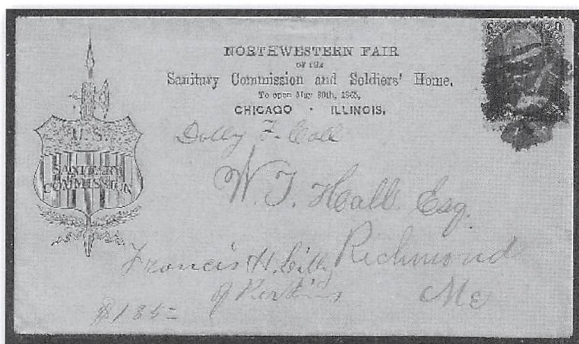 NORTHWESTERN FAIR
OF THE
Sanitary Commission and Soldiers' Home,
To open May 30th, 1865,
CHICAGO · ILLINOIS.
U.S.
SANITARY
COMMISSION
Dolly F. Hall
W. T. Hall Esq.
Richmond
Me
Francis H.
$185-